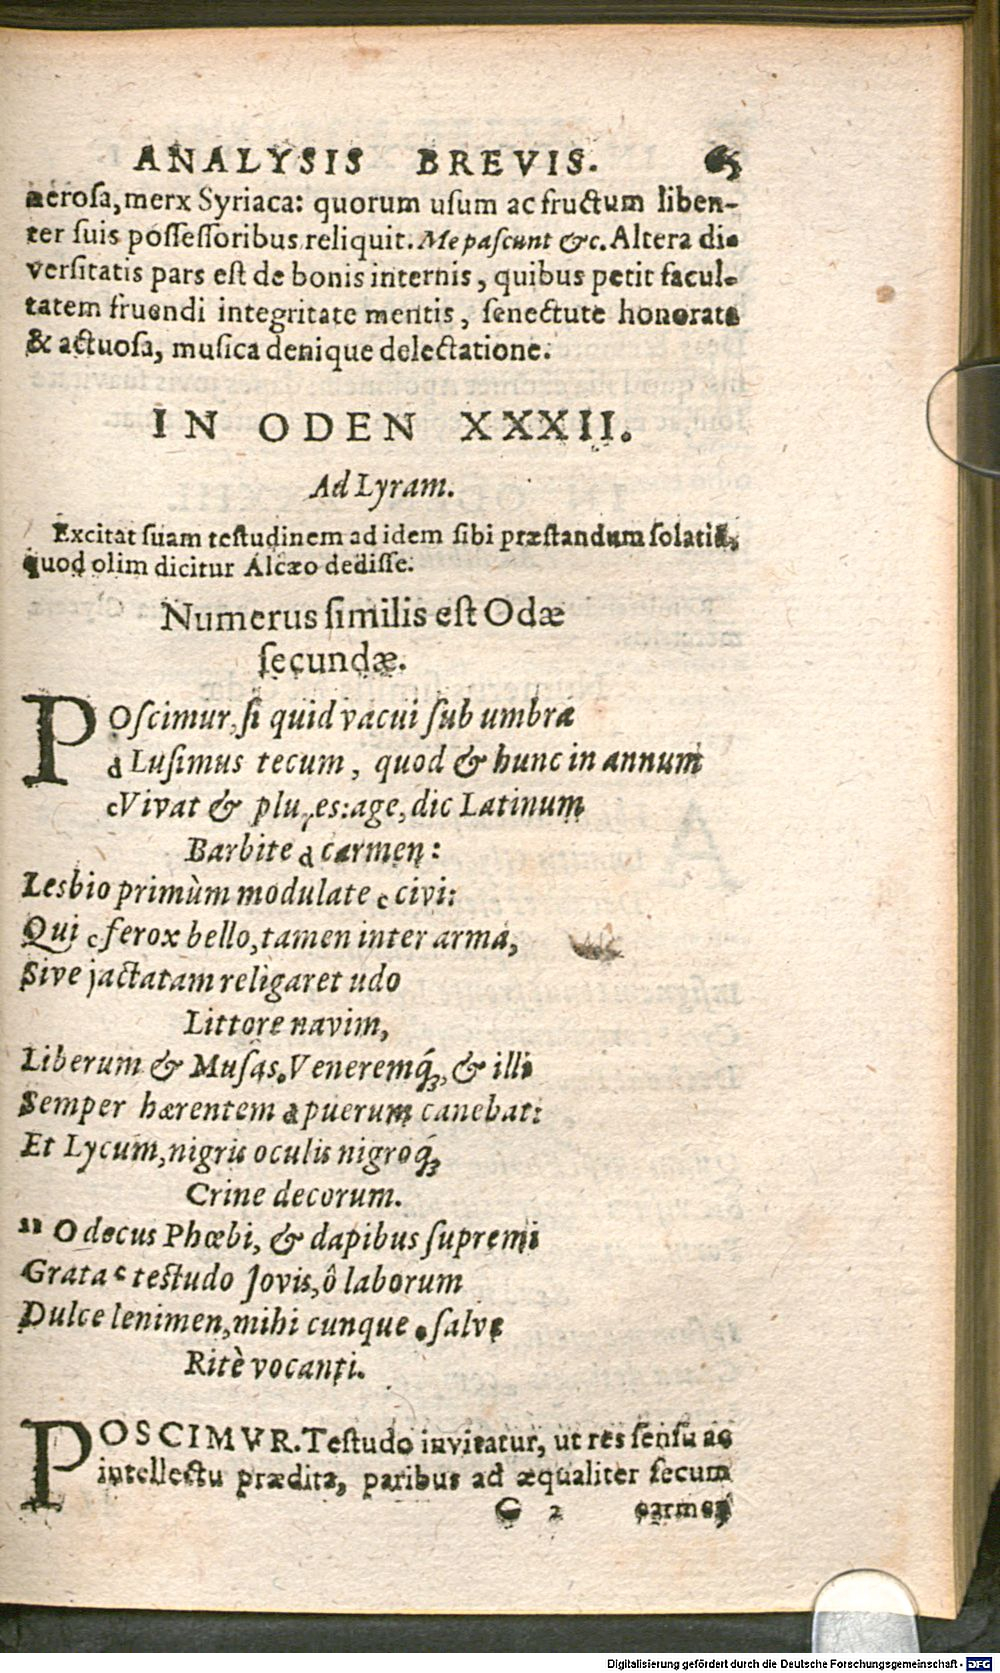 ANALYSIS BREVIS. 65
nerosa, merx Syriaca: quorum usum ac fructum liben-
ter suis possessoribus reliquit. Me pascunt &c. Altera di-
versitatis pars est de bonis internis, quibus petit facul-
tatem fruendi integritate mentis, senectute honorata
& actuosa, musica denique delectatione.
IN ODEN XXXII.
Ad Lyram.
Excitat suam testudinem ad idem sibi præstandum solatiũ,
quod olim dicitur Alcæo dedisse.
Numerus similis est Odæ
secundæ.
POscimur, si quid vacui sub umbra
a Lusimus tecum, quod & hunc in annum
c Vivat & plures: age, dic Latinum
Barbite a carmen:
Lesbio primùm modulate c civi:
Qui c ferox bello, tamen inter arma,
Sive jactatam religaret udo
Littore navim,
Liberum & Musas. Veneremq́;, & illi
Semper hærentem a puerum canebat:
Et Lycum, nigris oculis nigroq́;
Crine decorum.
" O decus Phœbi, & dapibus supremi
Grata c testudo Jovis, ô laborum
Dulce lenimen, mihi cunque salve
Ritè vocanti.
POSCIMVR. Testudo invitatur, ut res sensu ac
intellectu prædita, paribus ad æqualiter secum
G 2 carmen
Digitalisierung gefördert durch die Deutsche Forschungsgemeinschaft - DFG